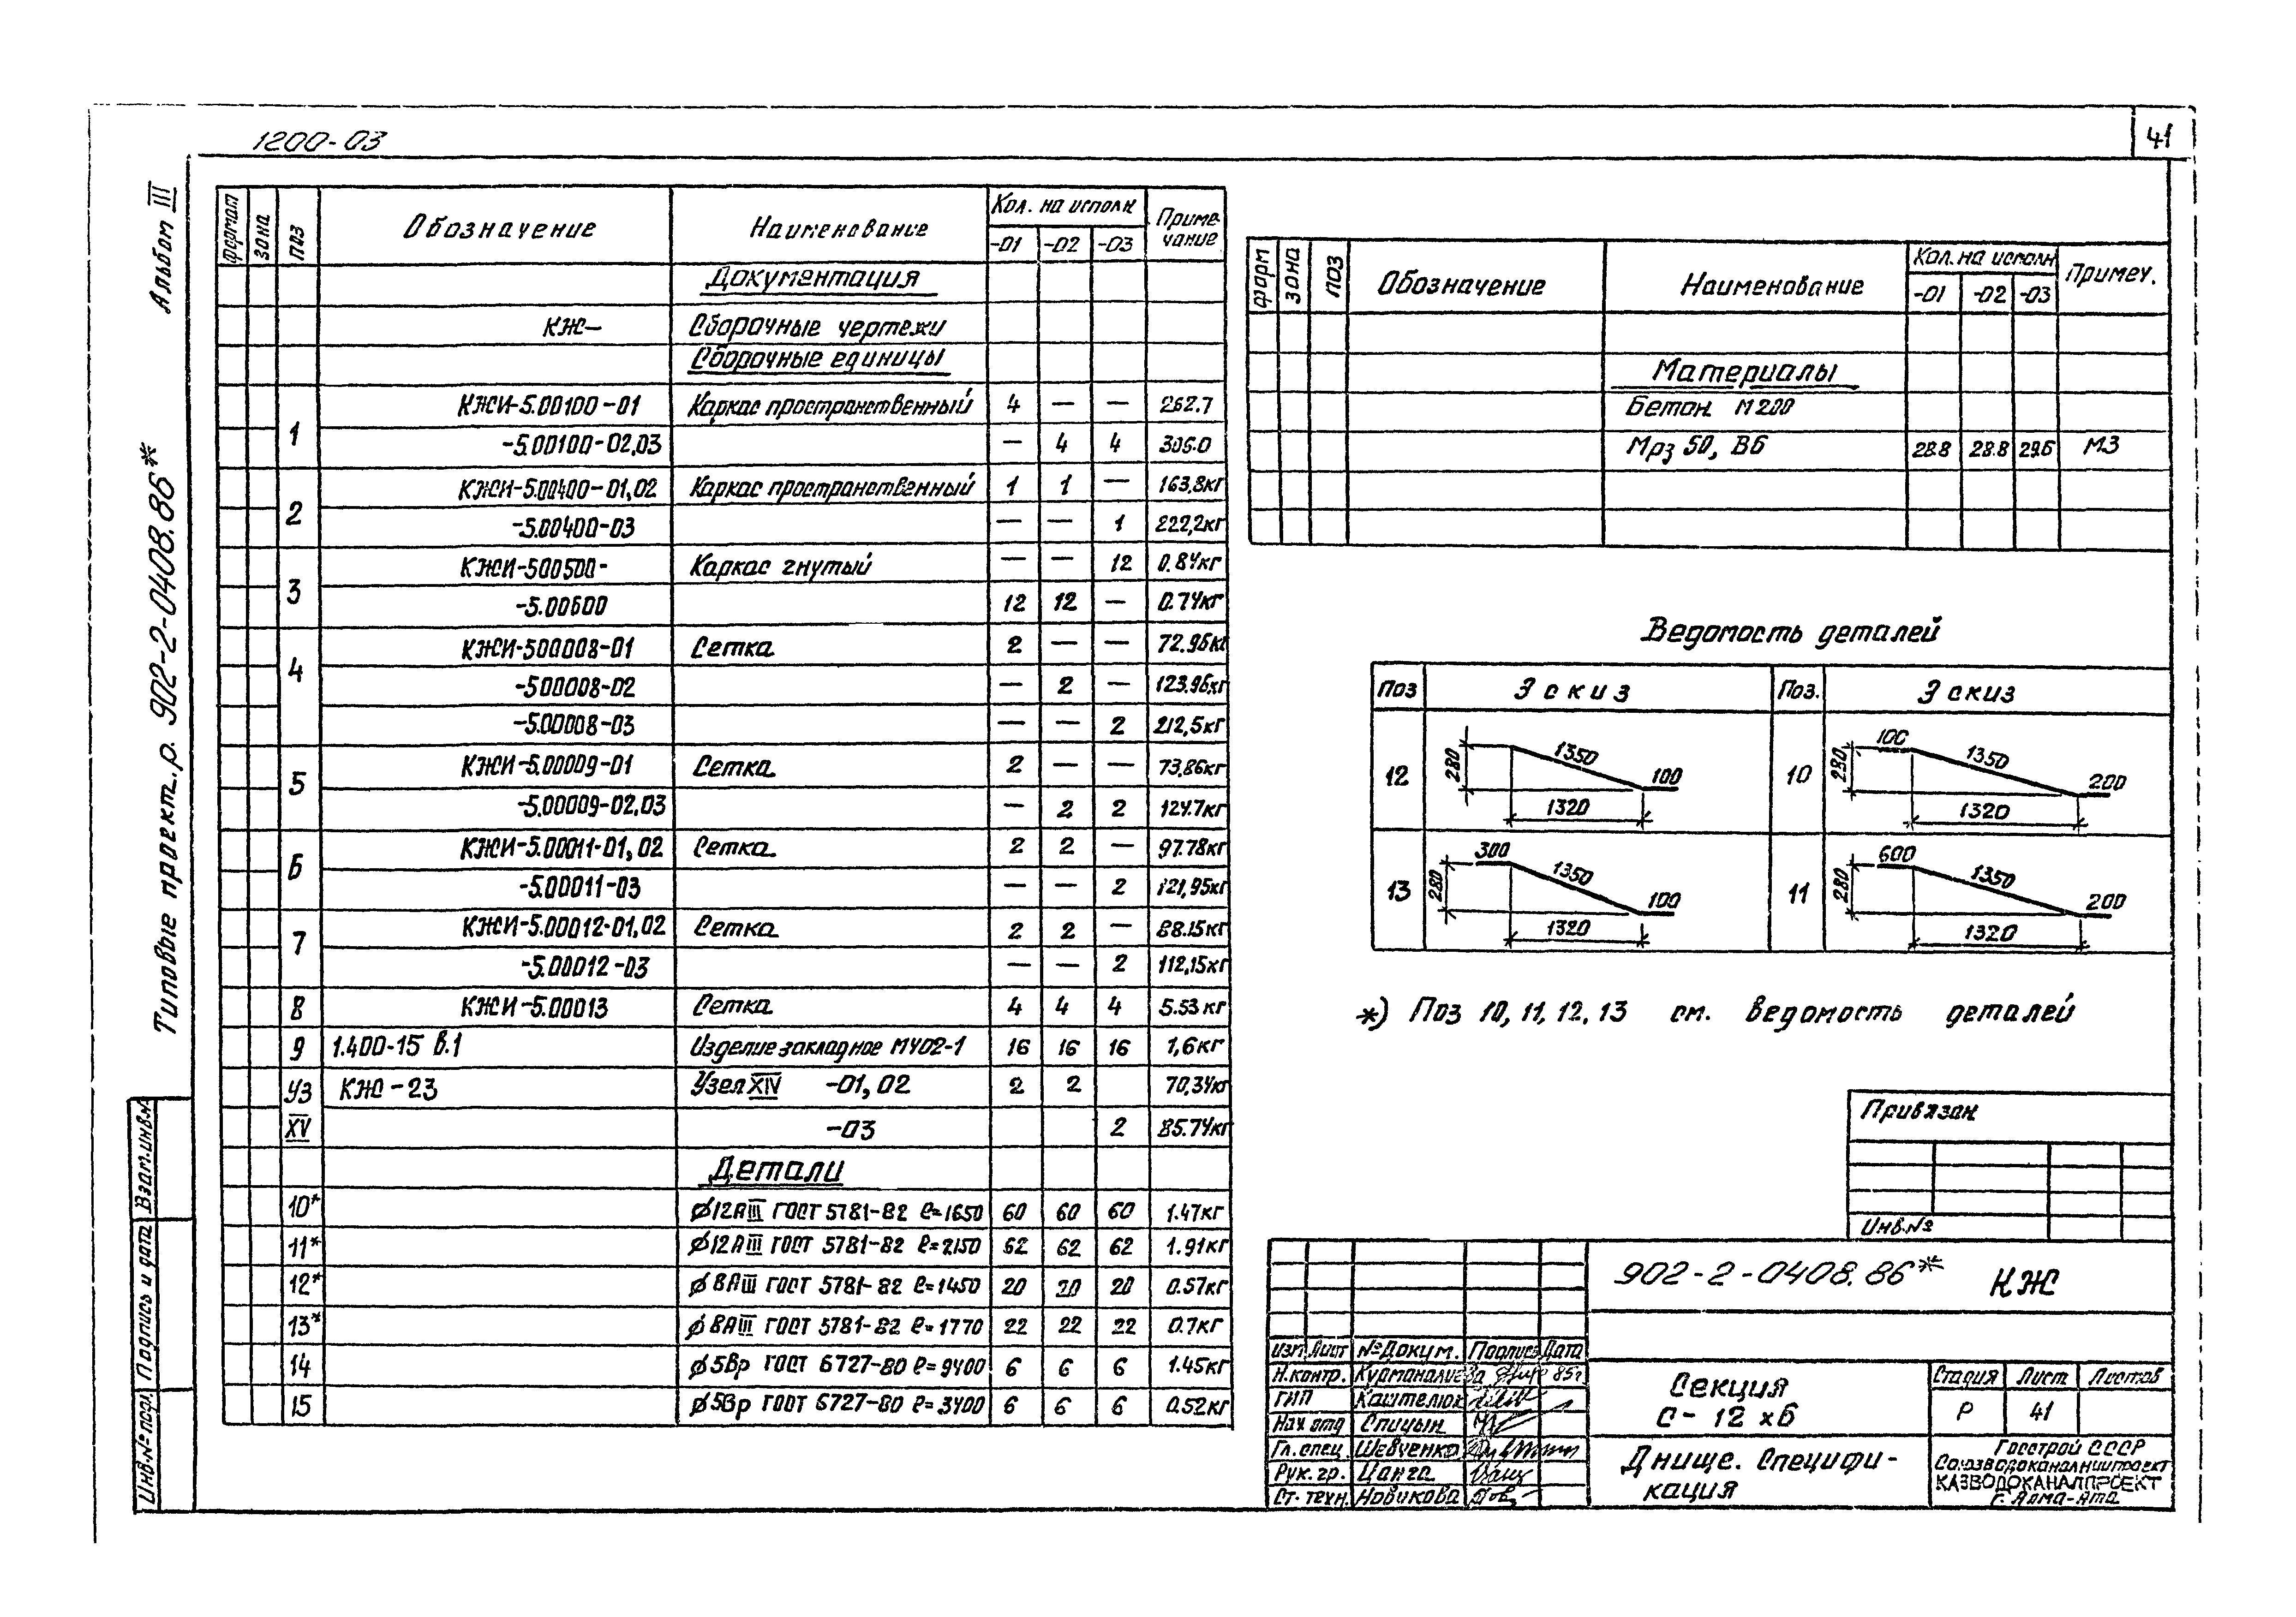 1200-03
41
Альбом III
Типовые проект. р. 902-2-0408.86*
Взам.инв.№
Подпись и дата
Инв.№ подл.
Формат Зона Поз Обозначение Наименование Кол. на исполн Приме-
-01 -02 -03 чание
Документация
КЖ- Сборочные чертежи
Сборочные единицы
1 КЖИ-5.00100-01 Каркас пространственный 4 — — 262.7
-5.00100-02,03 — 4 4 306.0
2 КЖИ-5.00400-01,02 Каркас пространственный 1 1 — 163,8кг
-5.00400-03 — — 1 222,2кг
3 КЖИ-500500- Каркас гнутый — — 12 0.84кг
-5.00600 12 12 — 0.74кг
4 КЖИ-500008-01 Сетка 2 — — 72.96кг
-500008-02 — 2 — 123.96кг
-5.00008-03 — — 2 212,5кг
5 КЖИ-5.00009-01 Сетка 2 — — 73,86кг
-5.00009-02,03 — 2 2 124.7кг
6 КЖИ-5.00011-01,02 Сетка 2 2 — 97.78кг
-5.00011-03 — — 2 121,95кг
7 КЖИ-5.00012-01,02 Сетка 2 2 — 88.15кг
-5.00012-03 — — 2 112,15кг
8 КЖИ-5.00013 Сетка 4 4 4 5.53кг
9 1.400-15 в.1 Изделие закладное МУ02-1 16 16 16 1,6кг
УЗ КЖ-23 Узел XIV -01,02 2 2 70,34кг
XV -03 2 85.74кг
Детали
10* ⌀12АIII ГОСТ 5781-82 ℓ=1650 60 60 60 1.47кг
11* ⌀12АIII ГОСТ 5781-82 ℓ=2150 62 62 62 1.91кг
12* ⌀8АIII ГОСТ 5781-82 ℓ=1450 20 20 20 0.57кг
13* ⌀8АIII ГОСТ 5781-82 ℓ=1770 22 22 22 0.7кг
14 ⌀5Вр ГОСТ 6727-80 ℓ=9400 6 6 6 1.45кг
15 ⌀5Вр ГОСТ 6727-80 ℓ=3400 6 6 6 0.52кг
Форм Зона Поз Обозначение Наименование Кол. на исполн Примеч.
-01 -02 -03
Материалы
Бетон М200
Мрз 50, В6 28.8 28.8 29.6 М3
Ведомость деталей
Поз Эскиз Поз. Эскиз
12 280 1350 100 1320
10 280 100 1350 200 1320
13 280 300 1350 100 1320
11 280 600 1350 200 1320
*) Поз 10, 11, 12, 13 см. ведомость деталей
Привязан
Инв.№
902-2-0408.86* КЖ
Изм Лист №Докум. Подпись Дата
Н.контр. Курманалиева 85г
ГИП Каштелюк
Нач отд Спицын
Гл.спец. Шевченко
Рук.гр. Цанга
Ст.техн. Новикова
Секция
С-12х6
Стадия Лист Листов
Р 41
Днище. Специфи-
кация
Госстрой СССР
Союзводоканалниипроект
КАЗВОДОКАНАЛПРОЕКТ
г. Алма-Ата